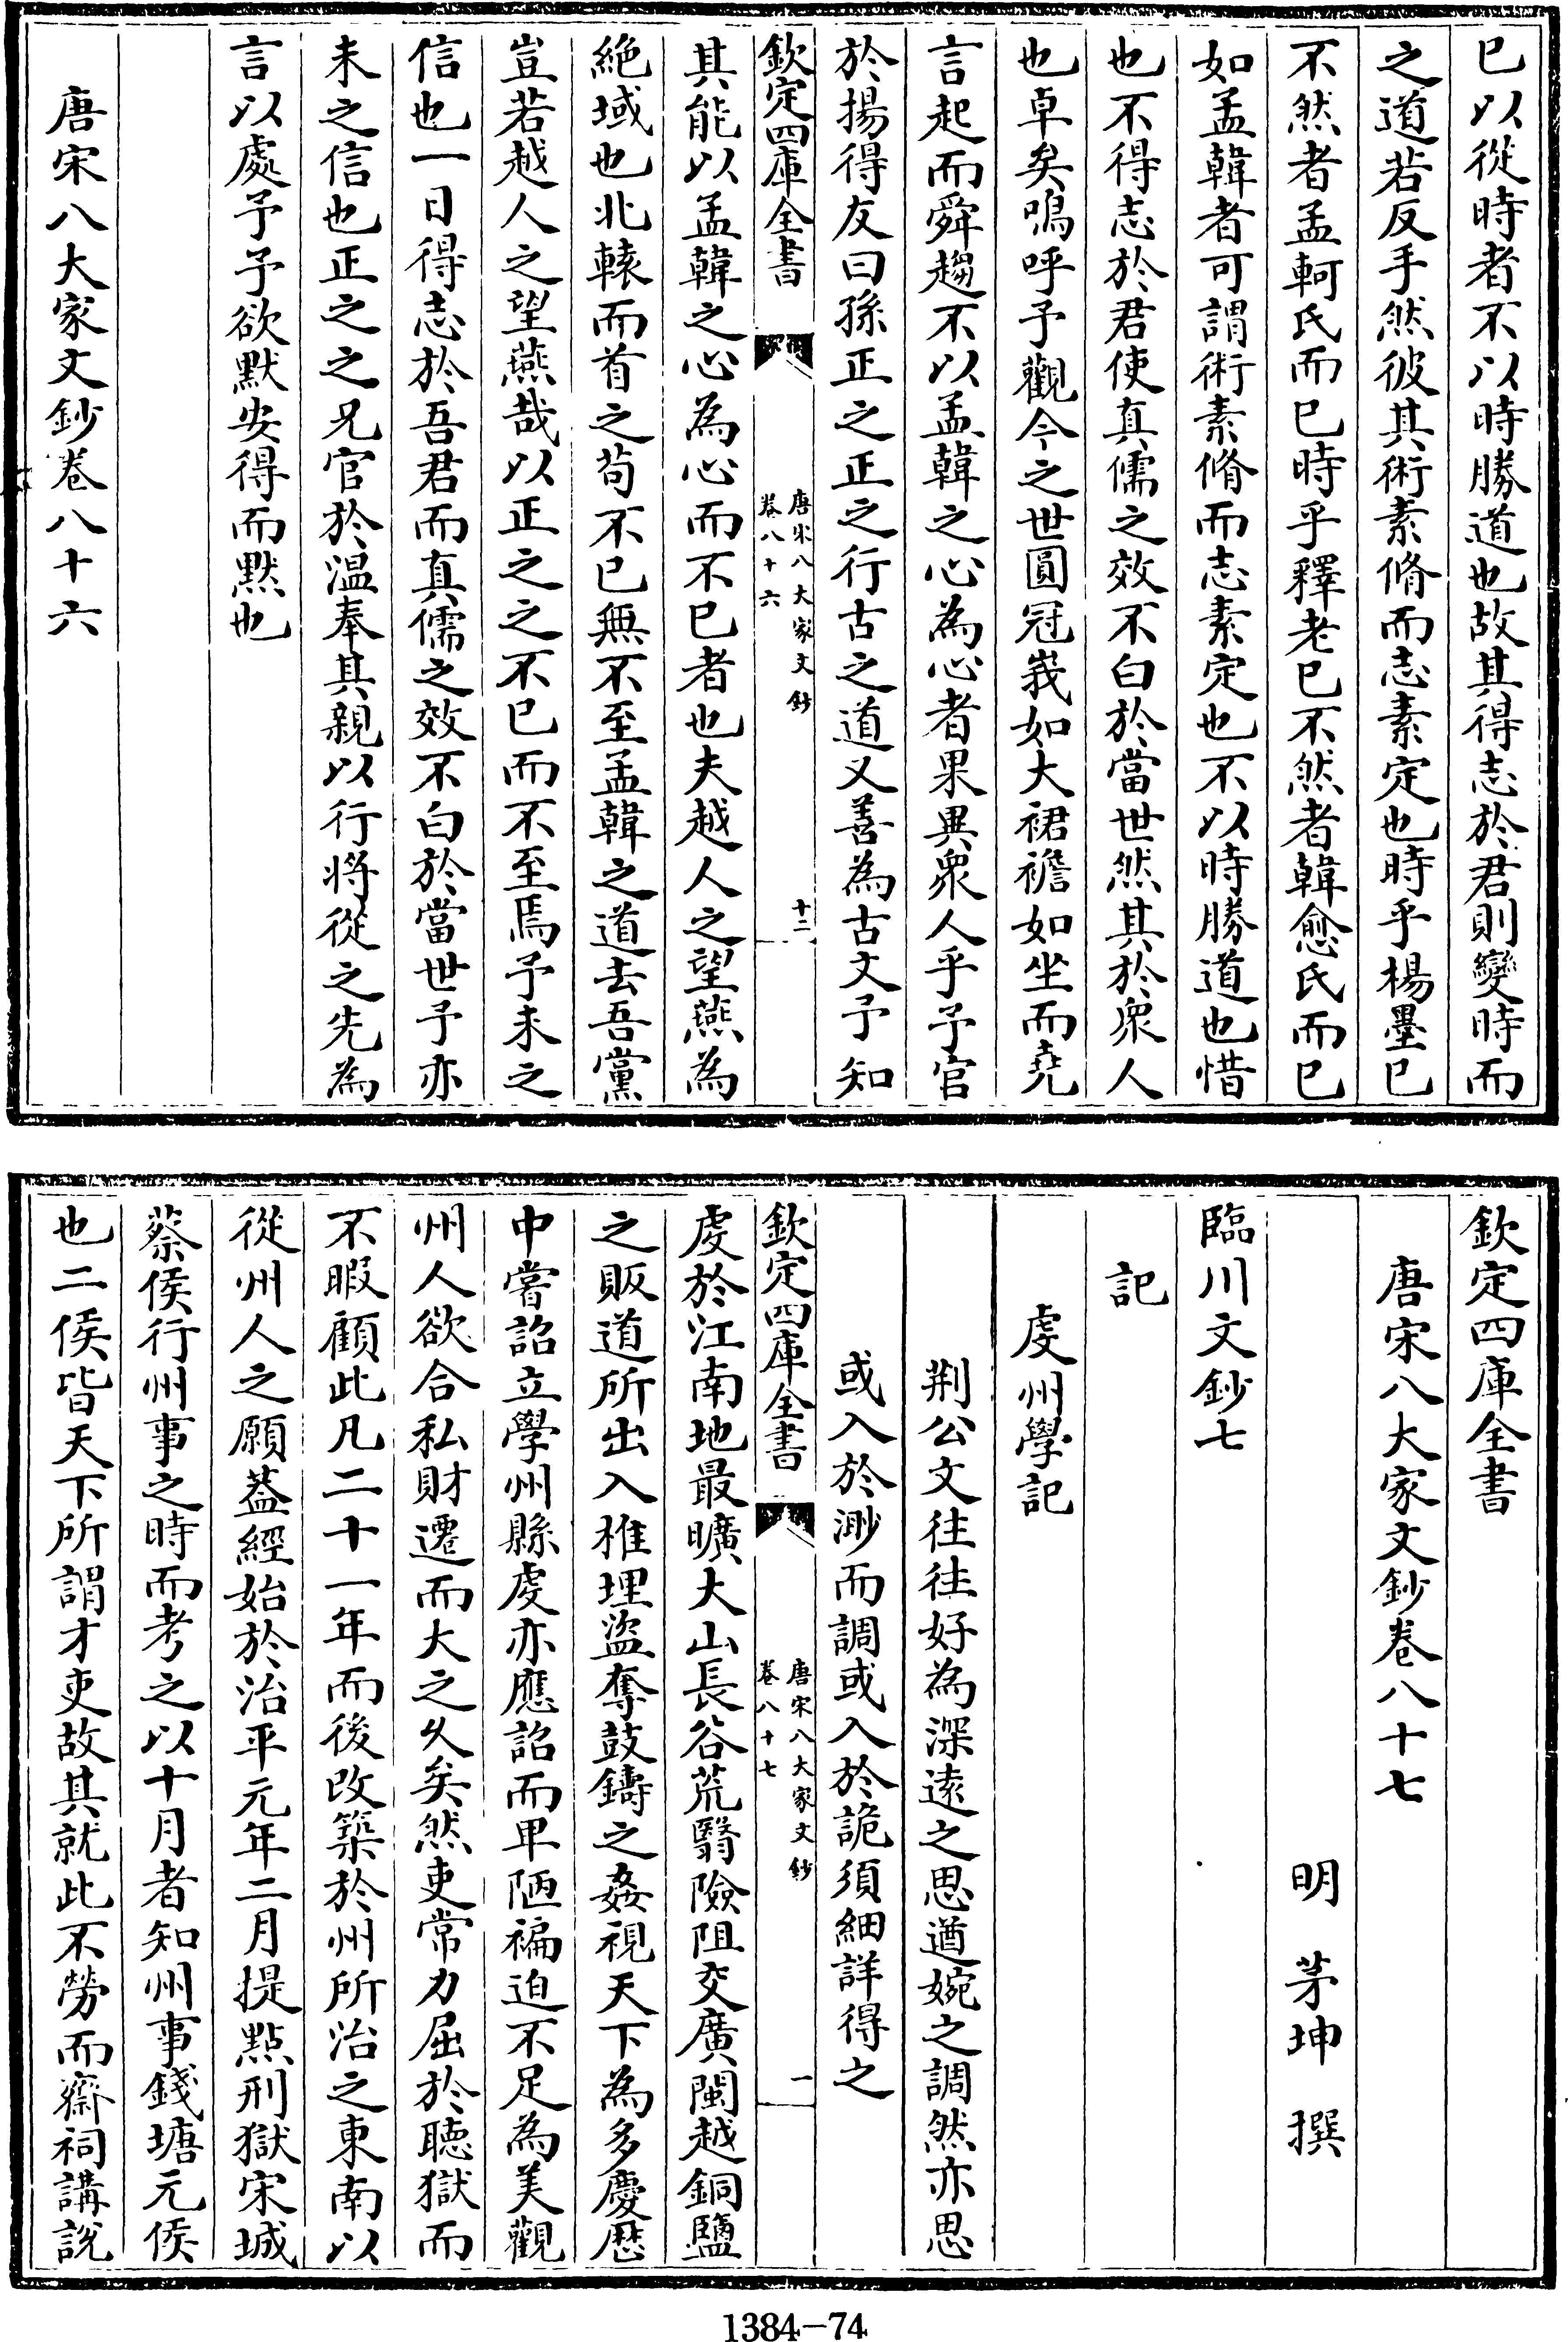 已以從時者不以時勝道也故其得志於君則變時而
之道若反手然彼其術素脩而志素定也時乎楊墨已
不然者孟軻氏而已時乎釋老已不然者韓愈氏而已
如孟韓者可謂術素脩而志素定也不以時勝道也惜
也不得志於君使真儒之效不白於當世然其於衆人
也卓矣嗚呼予觀今之世圓冠峩如大裙襜如坐而堯
言起而舜趨不以孟韓之心為心者果異衆人乎予官
於揚得友曰孫正之正之行古之道又善為古文予知
欽定四庫全書
唐宋八大家文鈔
卷八十六
十二
其能以孟韓之心為心而不已者也夫越人之望燕為
絶域也北轅而首之苟不已無不至孟韓之道去吾黨
豈若越人之望燕哉以正之之不已而不至焉予未之
信也一日得志於吾君而真儒之效不白於當世予亦
未之信也正之之兄官於温奉其親以行將從之先為
言以處予予欲默安得而默也
唐宋八大家文鈔卷八十六
欽定四庫全書
唐宋八大家文鈔卷八十七
明 茅坤 撰
臨川文鈔七
記
虔州學記
荆公文往往好為深逺之思遒婉之調然亦思
或入於渺而調或入於詭須細詳得之
欽定四庫全書
唐宋八大家文鈔
卷八十七
一
虔於江南地最曠大山長谷荒翳險阻交廣閩越銅鹽
之販道所出入椎埋盜奪鼓鑄之姦視天下為多慶厯
中嘗詔立學州縣虔亦應詔而卑陋褊迫不足為美觀
州人欲合私財遷而大之乆矣然吏常力屈於聽獄而
不暇顧此凡二十一年而後改築於州所治之東南以
從州人之願蓋經始於治平元年二月提點刑獄宋城
蔡侯行州事之時而考之以十月者知州事錢塘元侯
也二侯皆天下所謂才吏故其就此不勞而齋祠講說
1384-74